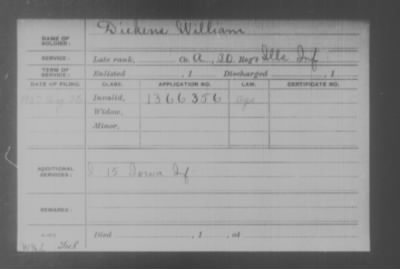 NAME OF SOLDIER: Dickens William
SERVICE: Late rank, Co. A, 20 Reg't Ills Inf
TERM OF SERVICE: Enlisted , 1 Discharged , 1
DATE OF FILING. CLASS. APPLICATION NO. LAW. CERTIFICATE NO.
Aug Invalid, 1366356 Age
Widow,
Minor,
ADDITIONAL SERVICES: 15 Iowa Inf
REMARKS:
Died , 1 , at